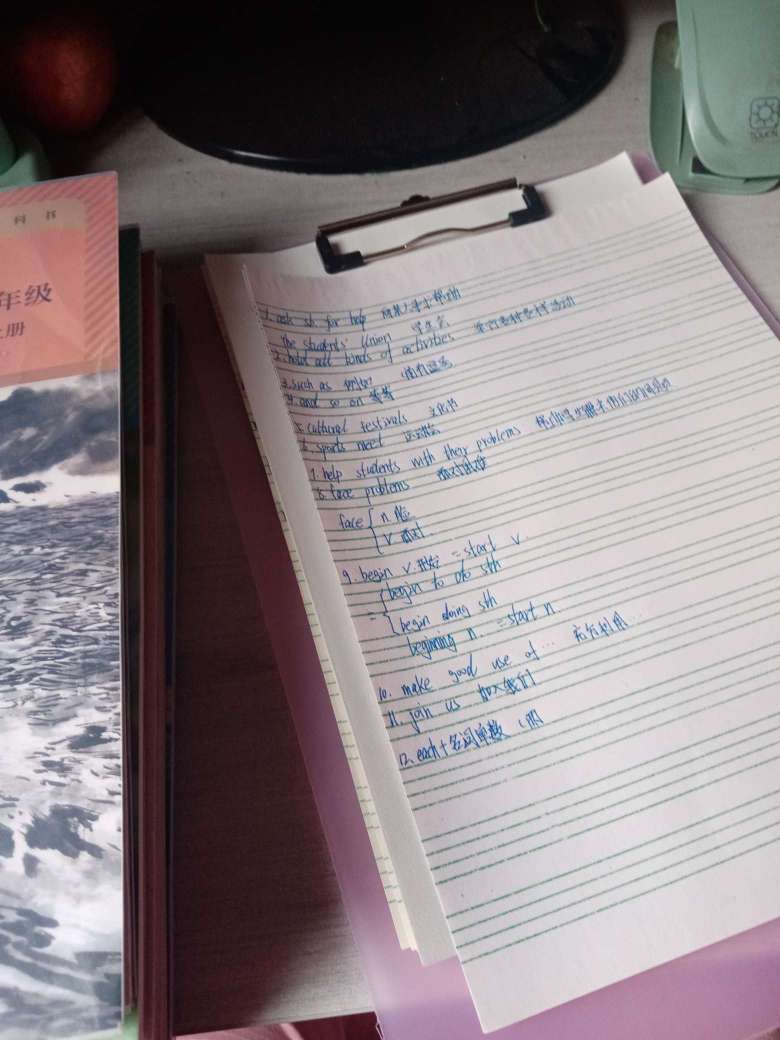 科 书
年级
上册
1. ask sb. for help 向某人寻求帮助
The students' Union 学生会
2. hold all kinds of activities 举行各种各样活动
3. such as
4. and so on 等等
5. cultural festivals 文化节
6. sports meet 运动会
7. help students with their problems 帮助学生解决他们的问题
8. face problems 面对问题
face { n. 脸
{ v. 面对
9. begin v. 开始 = start v.
{ begin to do sth
{ begin doing sth
beginning n. = start n.
10. make good use of ... 充分利用...
11. join us 加入我们
12. each + 名词单数